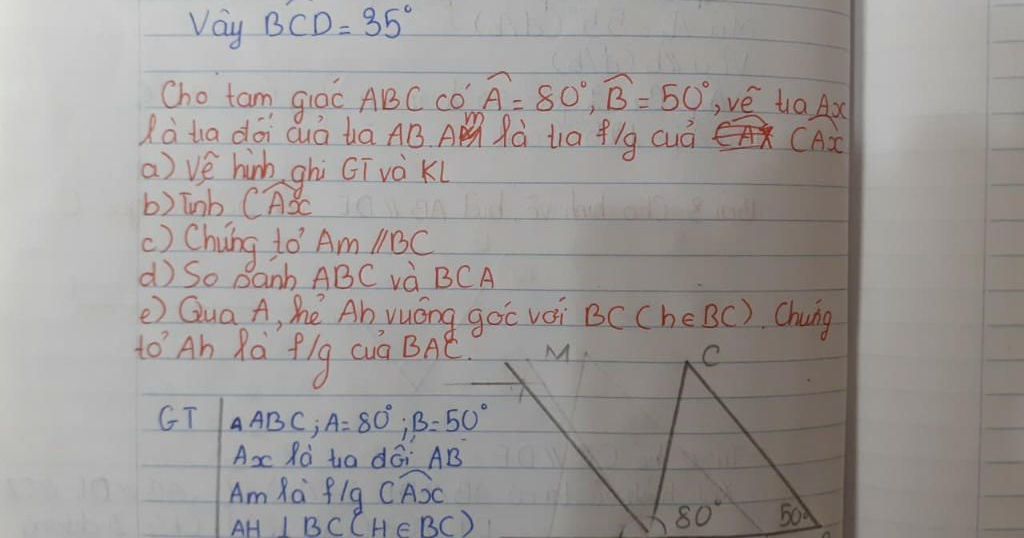 Vậy BCD = 35°
Cho tam giác ABC có Â = 80°, B̂ = 50°, vẽ tia Ax
là tia đối của tia AB. Am là tia f/g của CAx
a) Vẽ hình, ghi GT và KL
b) Tính CAx
c) Chứng tỏ Am // BC
d) So sánh ABC và BCA
e) Qua A, kẻ Ah vuông góc với BC (h ∈ BC). Chứng
tỏ Ah là f/g của BAC.
M C
GT ΔABC; A = 80°; B = 50°
Ax là tia đối AB
Am là f/g CAx
AH ⊥ BC (H ∈ BC)
80° 50°